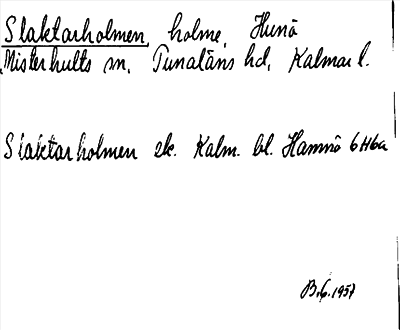 Slaktarholmen, holme, Hunö
Misterhults sn, Tunaläns hd, Kalmar l.
Slaktarholmen ek. Kalm. bl. Hamnö 6H6a
B.G. 1957